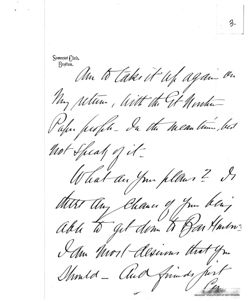 3-
Somerset Club,
Boston.
Am to take it up again on
my return, with the Gt Northern
Paper people - In the meantime, best
not speak of it -
What are your plans? Is
there any chance of you being
able to get down to Bar Harbor
I am most desirous that you
should - And friends just